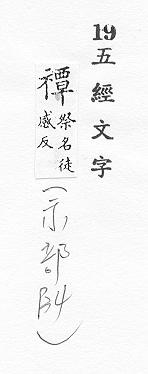 19五經文字
禫
祭名徒
感反
(示部B4)